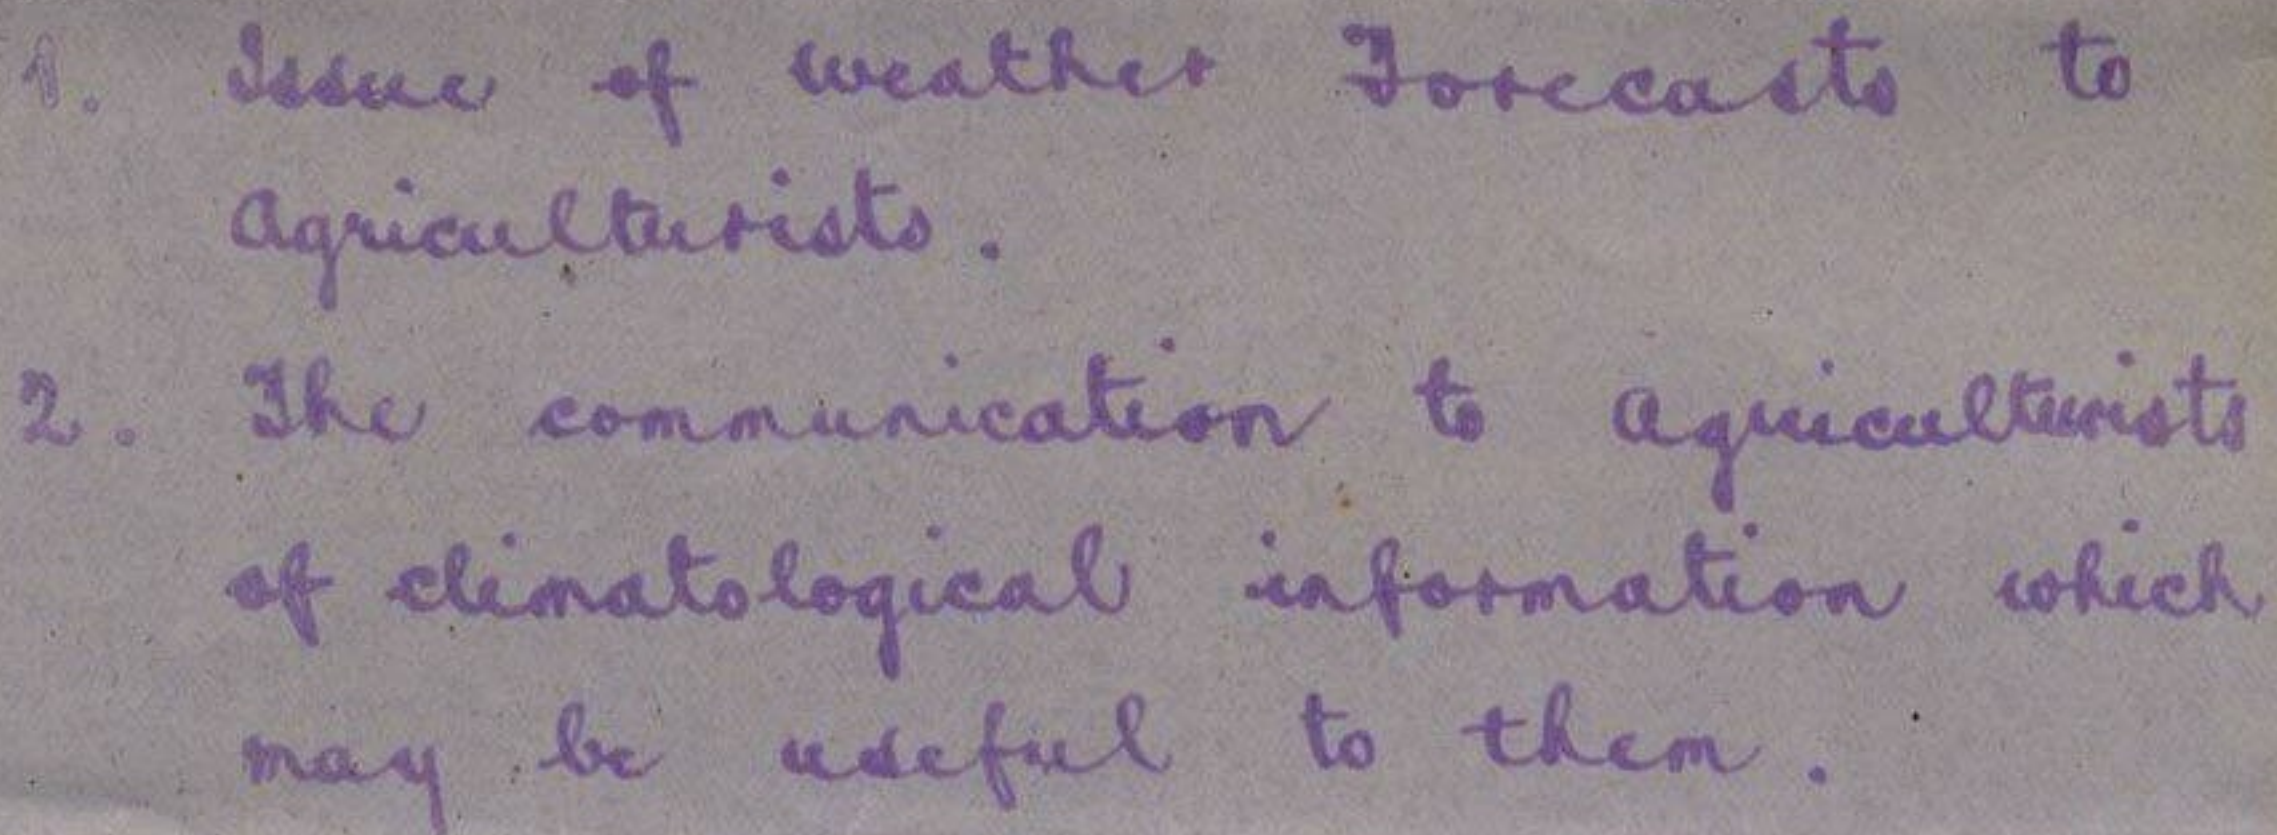 1. Issue of weather Forecasts to
Agriculturists.
2. The communication to Agriculturists
of climatological information which
may be useful to them.